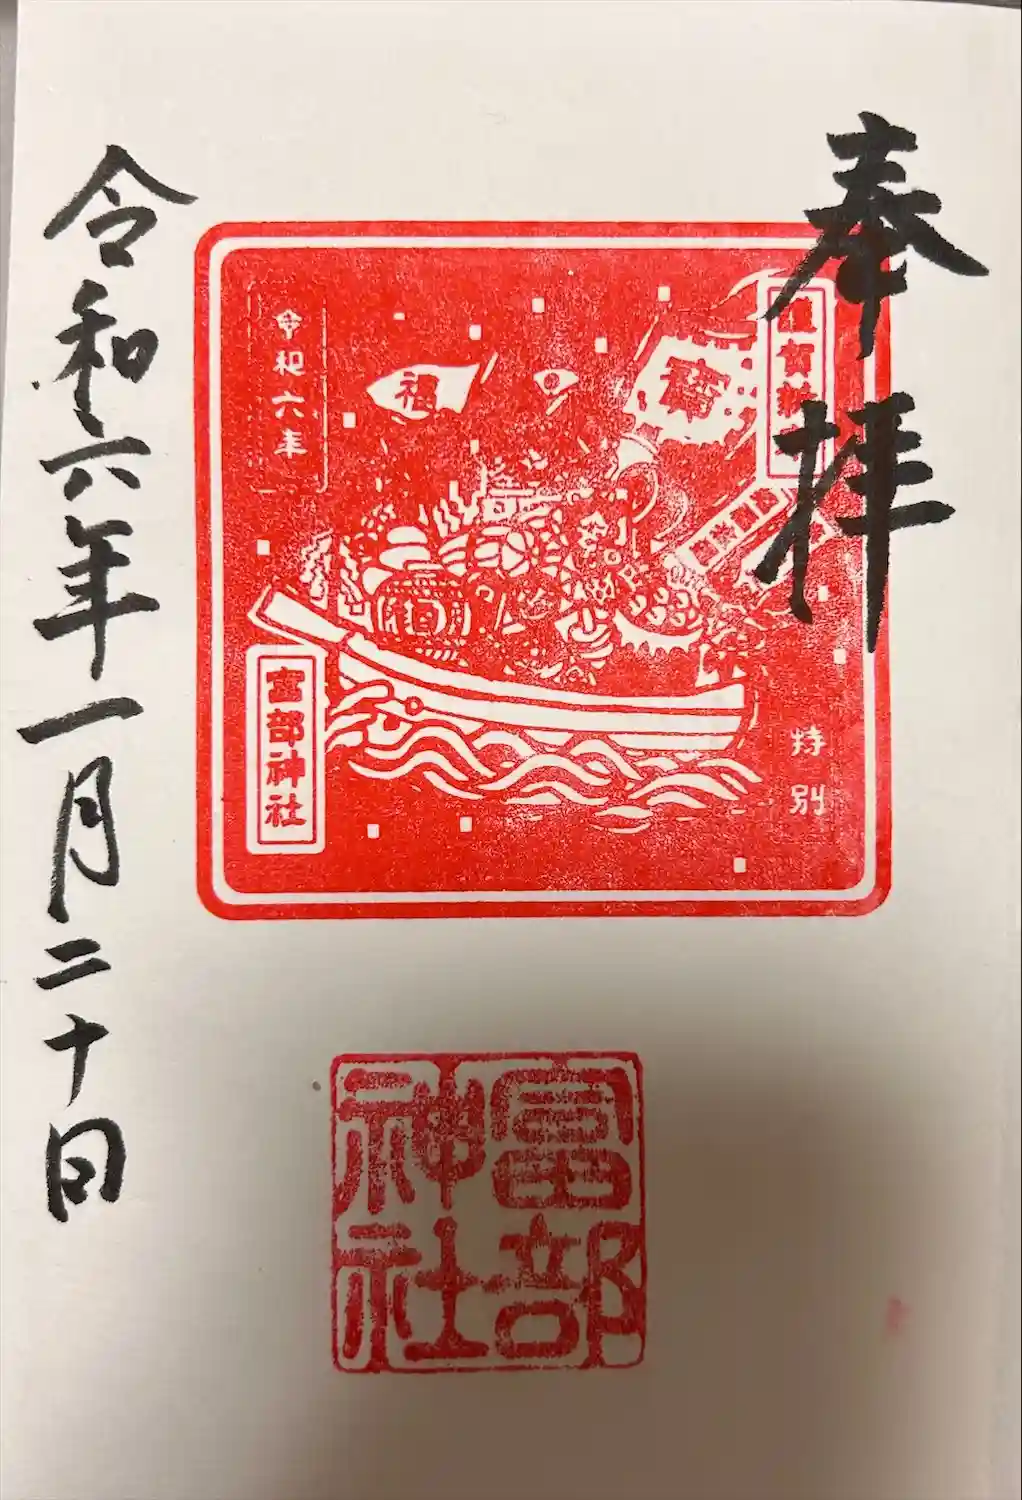 奉拝
謹賀新年
福
令和六年
富部神社
特別
富部
神社
令和六年一月二十日